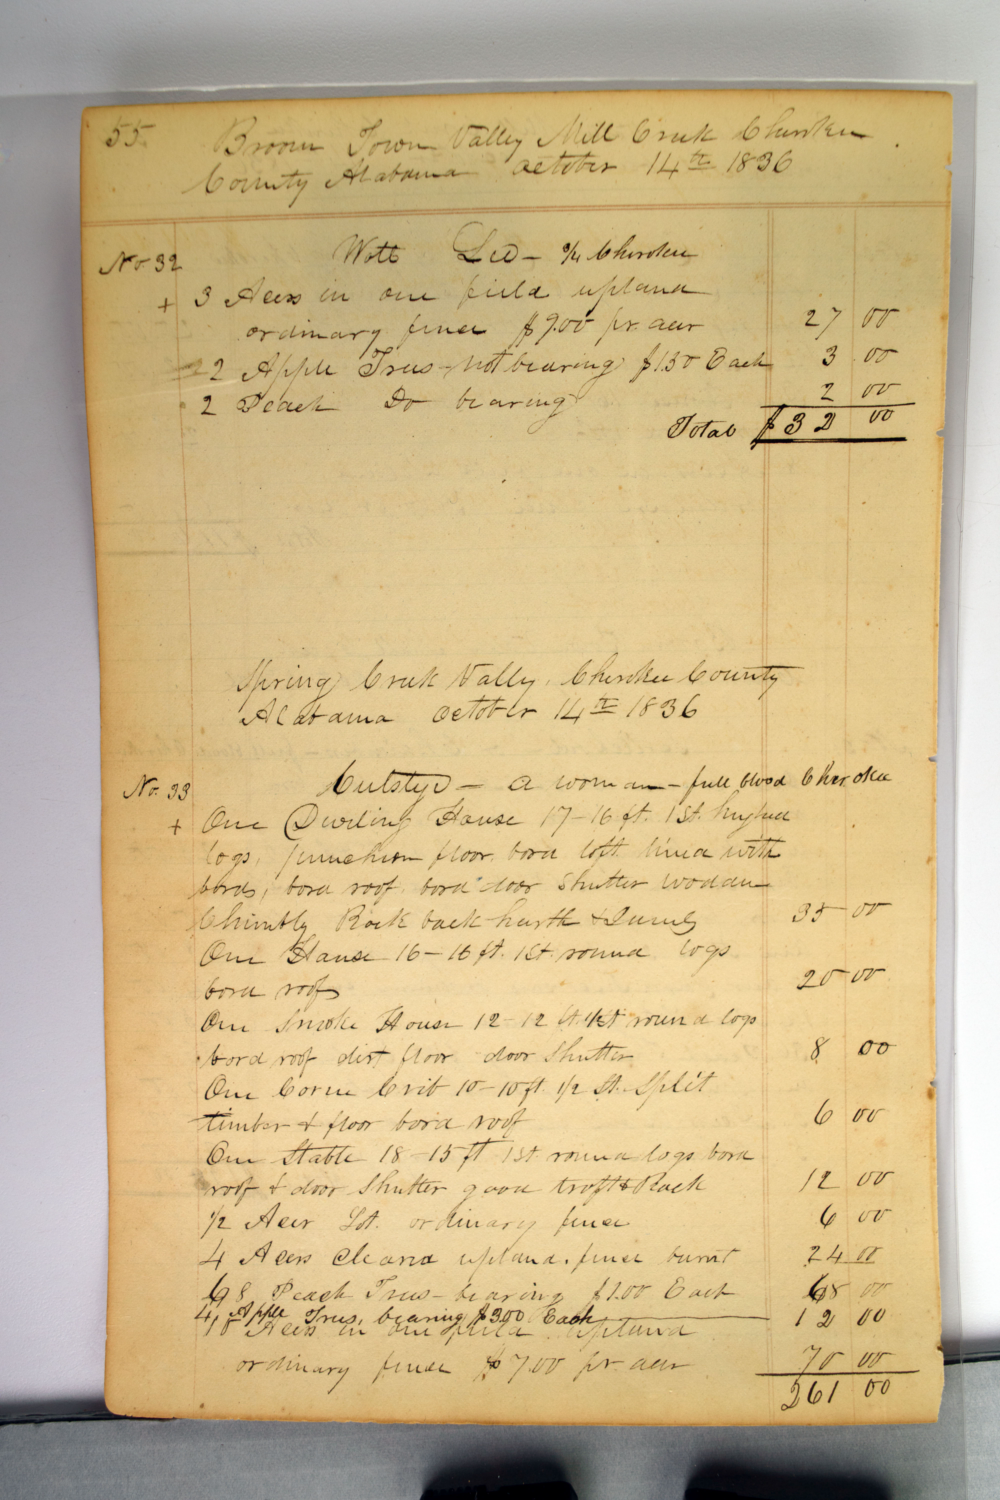 55
Broom Town Valley Mill Creek Cherokee
County Alabama October 14th 1836
No 32 Wott Led - 3/4 Cherokee
+ 3 Acers in one field upland
ordinary fence $9.00 pr. acer 27 00
2 Apple Trees - Not bearing $1.50 Each 3 00
2 Peach Do bearing 2 00
Total $32 00
Spring Creek Vally. Cherokee County
Alabama October 14th 1836
No. 33 Cutstyo - a woman - full blood Cherokee
+ One Dweling House 17-16 ft. 1 St. hughed
logs, punchion floor bord loft lined with
bords, bord roof bord door Shutter woodan
Chimbly Rock back harth & Jams 35 00
One House 16-16 ft. 1St. round logs
bord roof 20 00
One Smoke House 12-12 ft. 1/2 St round logs
bord roof dirt floor door Shutter 8 00
One Corne Crib 10-10 ft. 1/2 St. Split
timber & floor bord roof 6 00
One Stable 18-15 ft 1st round logs bord
roof & door Shutter good troft & Rack 12 00
1/2 Acer Lot. ordinary fence 6 00
4 Acers Cleard upland. fence burnt 24 00
68 Peach Trees - bearing $1.00 Each 68 00
4 Apple Trees, bearing $3.00 Each 12 00
10 Acers in one field upland
ordinary fence $7.00 pr. acer 70 00
261 00